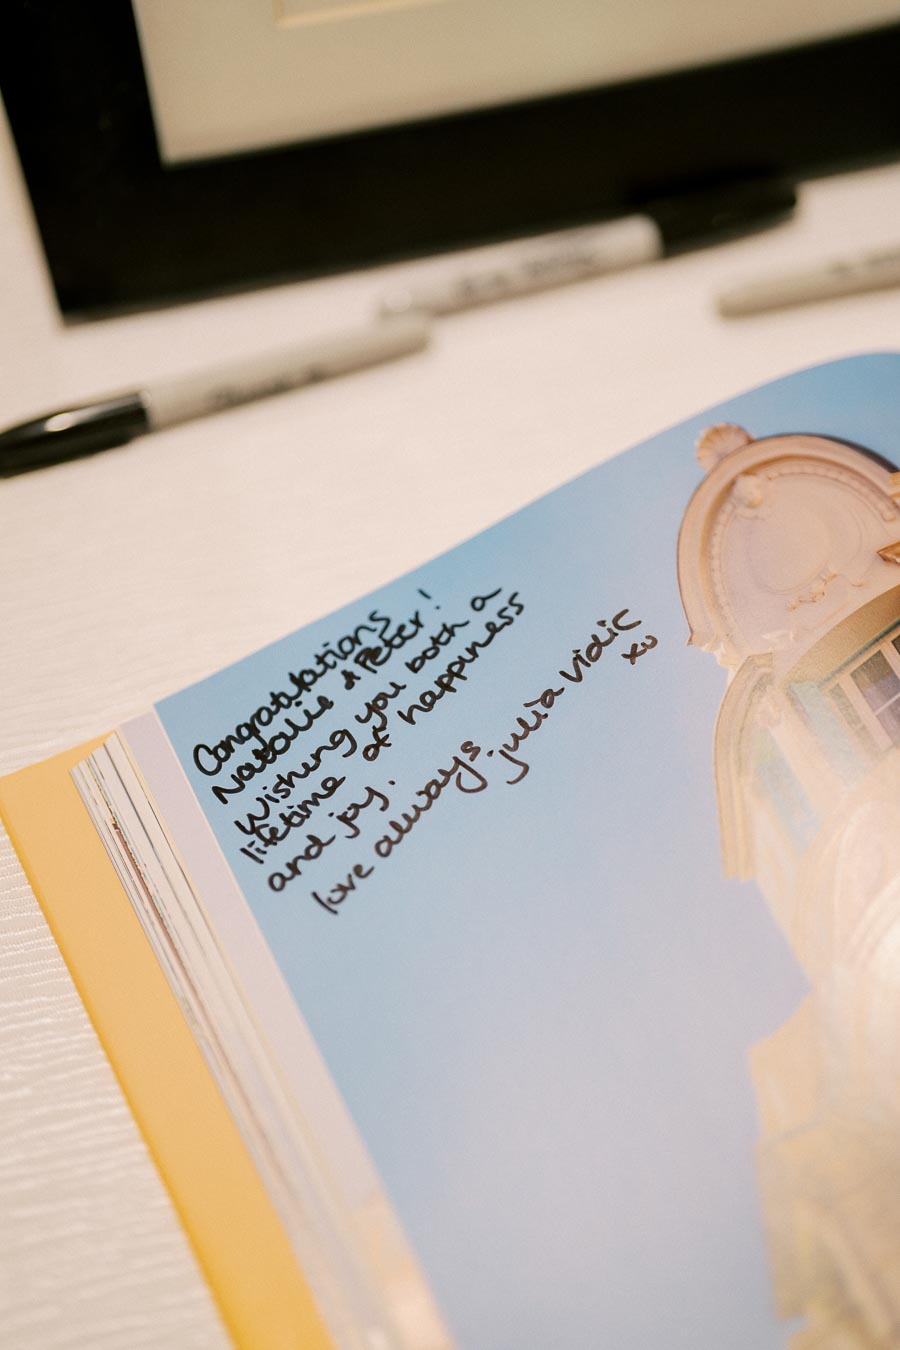 Congratulations
Natalie & Peter!
Wishing you both a
lifetime of happiness
and joy.
love always, julia vidic
xo